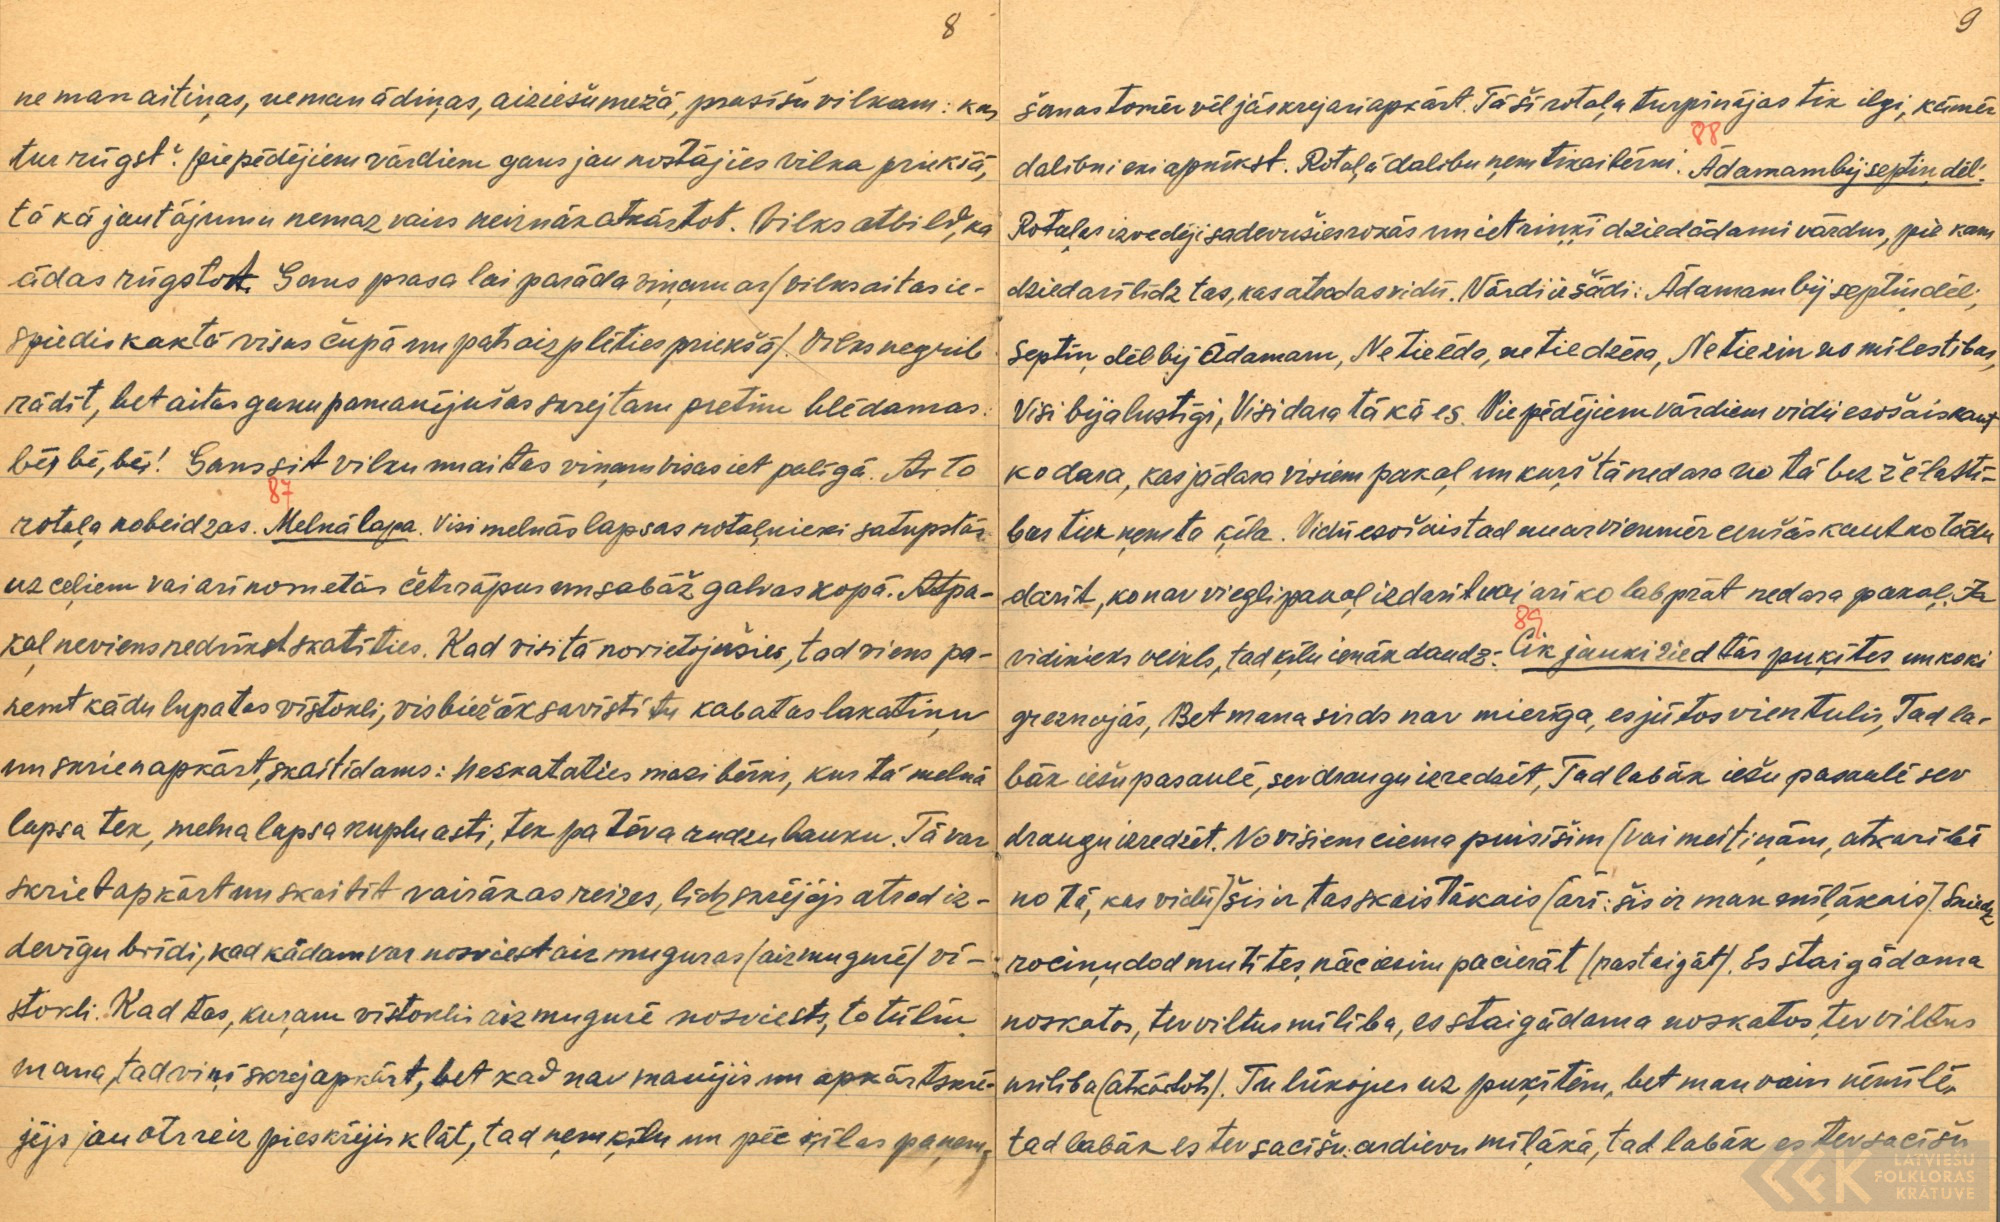 8
ne man aitiņas, ne man ādiņas, aiziešu mežā, prasīšu vilkam: kas
tur rūgst? pie pēdējiem vārdiem gans jau nostājies vilka priekšā,
tā kā jautājumu nemaz vairs neiznāk atkārtot. Vilks atbild, ka
ādas rūgstot. Gans prasa lai parāda viņam ar (vilks aitas ie-
spiedis kaktā visas čupā un pats aizplēties priekšā). Vilks negrib
rādīt, bet aitas ganu pamanījušas skrej tam pretim blēdamas:
bē, bē, bē! Gans sit vilku un aitas viņam visas iet palīgā. Ar to
87
rotaļa nobeidzas. Melnā lapa. Visi melnās lapsas rotaļnieki satupstās
uz ceļiem vai arī nometās četrrāpus un sabāž galvas kopā. Atpa-
kaļ neviens nedrīkst skatīties. Kad visi tā novietojušies, tad viens pa-
ņemt kādu lupatas vīstokli, visbiežāk savīstītu kabatas lakatiņu
un skrien apkārt, skaitīdams: neskataties mazi bērni, kur tā melnā
lapsa tek, melna lapsa kuplu asti, tek pa tēva rudzu lauku. Tā var
skriet apkārt un skaitīt vairākas reizes, līdz skrējējs atrod iz-
devīgu brīdi, kad kādam var nosviest aiz muguras (aizmugurē) vī-
stokli. Kad tas, kuŗam vīstoklis aizmugurē nosviests, to tūliņ
mana, tad viņi skrej apkārt, bet kad nav manījis un apkārtskrē-
jējs jau otrreiz pieskrējis klāt, tad ņem ķīlu un pēc ķīlas paņem-
9
šanas tomēr vēl jāskrej ari apkārt. Tā šī rotaļa turpinājas tik ilgi, kāmēr
88
dalībnieki apnīkst. Rotaļā dalību ņem tikai bērni. Ādamam bij septiņ dēli.
Rotaļas izvedēji sadevušies rokās un iet riņķī dziedādami vārdus, pie kam
dzied arī līdz tas, kas atrodas vidū. Vārdi ir šādi: Ādamam bij septiņ dēli,
Septiņ dēli bij Ādamam, Ne tie ēda, ne tie dzēra, Ne tie zin no mīlestības,
Visi bija lustīgi, Visi dara tā kā es. Pie pēdējiem vārdiem vidū esošais kaut
ko dara, kas jādara visiem pakaļ un kuŗš tā nedara no tā bez žēlastī-
bas tiek ņemta ķīla. Vidū esošais tad nu arvienmēr cenšās kaut ko tādu
darīt, ko nav viegli pakaļ izdarīt vai arī ko labprāt nedara pakaļ. Ja
89
vidinieks veikls, tad ķīlu ienāk daudz. Cik jauki zied tās puķītes un koki
greznojās, Bet mana sirds nav mierīga, es jūtos vientulis, Tad la-
bāk iešu pasaulē, sev draugu izredzēt, Tad labāk iešu pasaulē sev
draugu izredzēt. No visiem ciema puisīšim (vai meitiņām, atkarībā
no tā, kas vidū) šis ir tas skaistākais (arī: šis ir man mīļākais). Sniedz
rociņu dod mutītes, nāc iesim pacierāt (pastaigāt). Es staigādama
noskatos, tev viltus mīlība, es staigādama noskatos, tev viltus
mīlība (atkārtots). Tu lūkojies uz puķītēm, bet man vairs nemīlē,
tad labāk es tev sacīšu ardievu mīļākā, tad labāk es tev sacīšu
LATVIEŠU
FOLKLORAS
KRĀTUVE